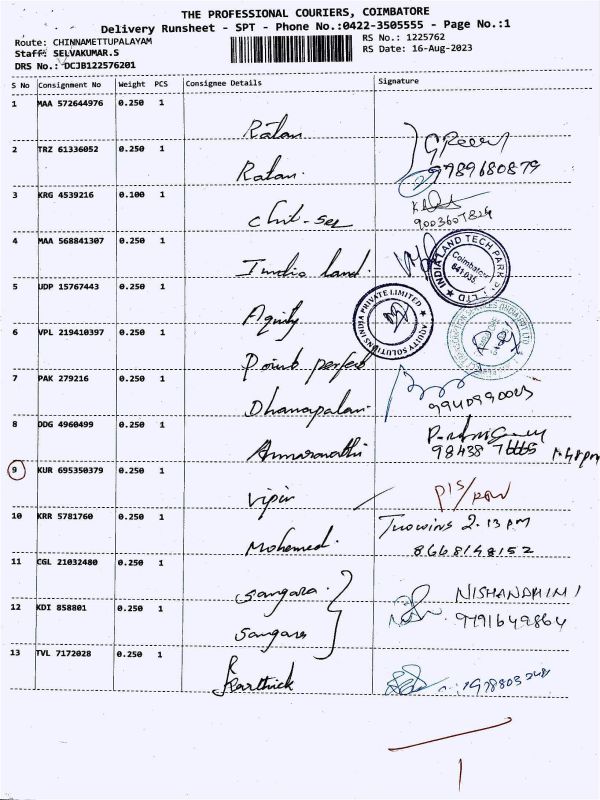 THE PROFESSIONAL COURIERS, COIMBATORE
Delivery Runsheet - SPT - Phone No.:0422-3505555 - Page No.:1
Route: CHINNAMETTUPALAYAM
RS No.: 1225762
Staff: SELVAKUMAR.S
RS Date: 16-Aug-2023
DRS No.: DCJB122576201
S No Consignment No Weight PCS Consignee Details Signature
1 MAA 572644976 0.250 1
Ratan
2 TRZ 61336052 0.250 1
Ratan.
9789680879
3 KRG 4539216 0.100 1
4 MAA 568841307 0.250 1
India land.
INDIA LAND TECH PARK
Coimbatore
641 035
5 UDP 15767443 0.250 1
Aquity
ACUITY SOLUTIONS INDIA PRIVATE LIMITED
6 VPL 219410397 0.250 1
Point perfect
7 PAK 279216 0.250 1
Dhanapalan.
8 DDG 4960499 0.250 1
98438
1.48pm
9 KUR 695350379 0.250 1
Vipin
10 KRR 5781760 0.250 1
Mohemed.
2.13 pm
8668148152
11 CGL 21032480 0.250 1
Sangara.
NISHANDHINI
12 KDI 858801 0.250 1
Sangara
9791649864
13 TVL 7172028 0.250 1
Karthick